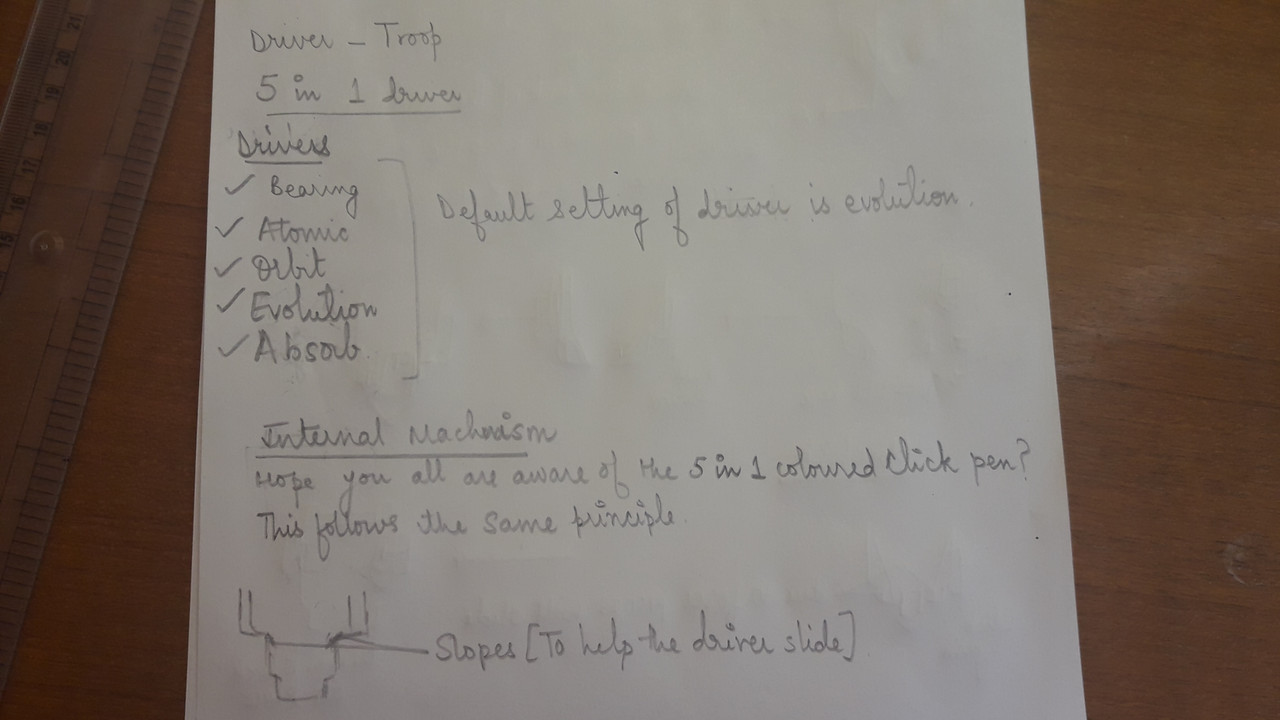 Driver - Troop
5 in 1 driver
Drivers
✓ Bearing
✓ Atomic
✓ Orbit
✓ Evolution
✓ Absorb
Default setting of driver is evolution.
Internal Machnism
Hope you all are aware of the 5 in 1 coloured click pen?
This follows the same principle.
Slopes [To help the driver slide]
21
20
19
18
17
16
15